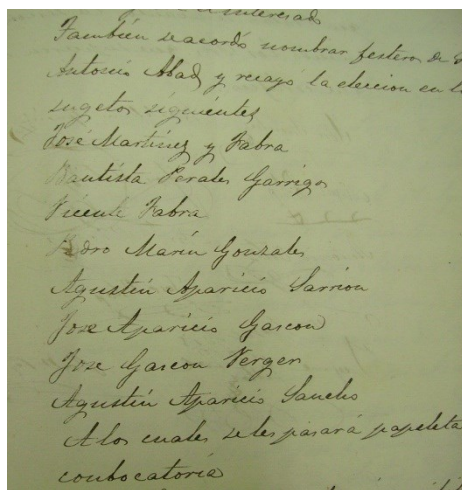 interesado
También se acordó nombrar festeros de S
Antonio Abad y recayó la eleccion en lo
sugetos siguientes
José Martinez y Fabra
Bautista Perales Garrigos
Vicente Fabra
Pedro Marin Gonzales
Agustin Aparicio Sarrion
Jose Aparicio Gascon
Jose Gascon Verger
Agustin Aparicio Sancho
A los cuales se les pasará papeleta
conbocatoria